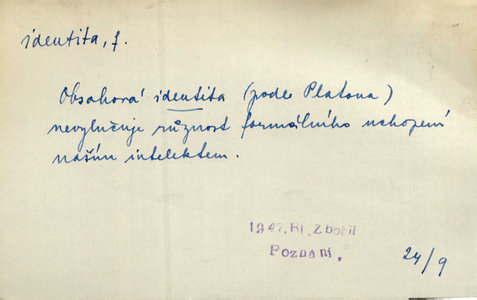 identita, f.
Obsahová identita (podle Platona)
nevylučuje různost formálního uchopení
naším intelektem.
1947, Fi, Zbořil
Poznání.
24/9